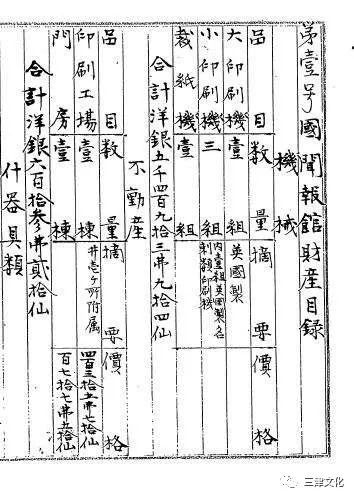 第壹号國聞報館財産目録
機械
品目 数量 摘要 價格
大印刷機 壹組 英國製
小印刷機 三組 内壹組英國製名刺類印刷機
裁紙機 壹組
合計洋銀五千四百九拾三弗九拾四仙
不動産
品目 数量 摘要 價格
印刷工場 壹棟 井壱ヶ所附属 四百三拾五弗七拾仙
門房 壹棟 百七拾七弗五拾仙
合計洋銀六百拾参弗貳拾仙
什器具類
三津文化